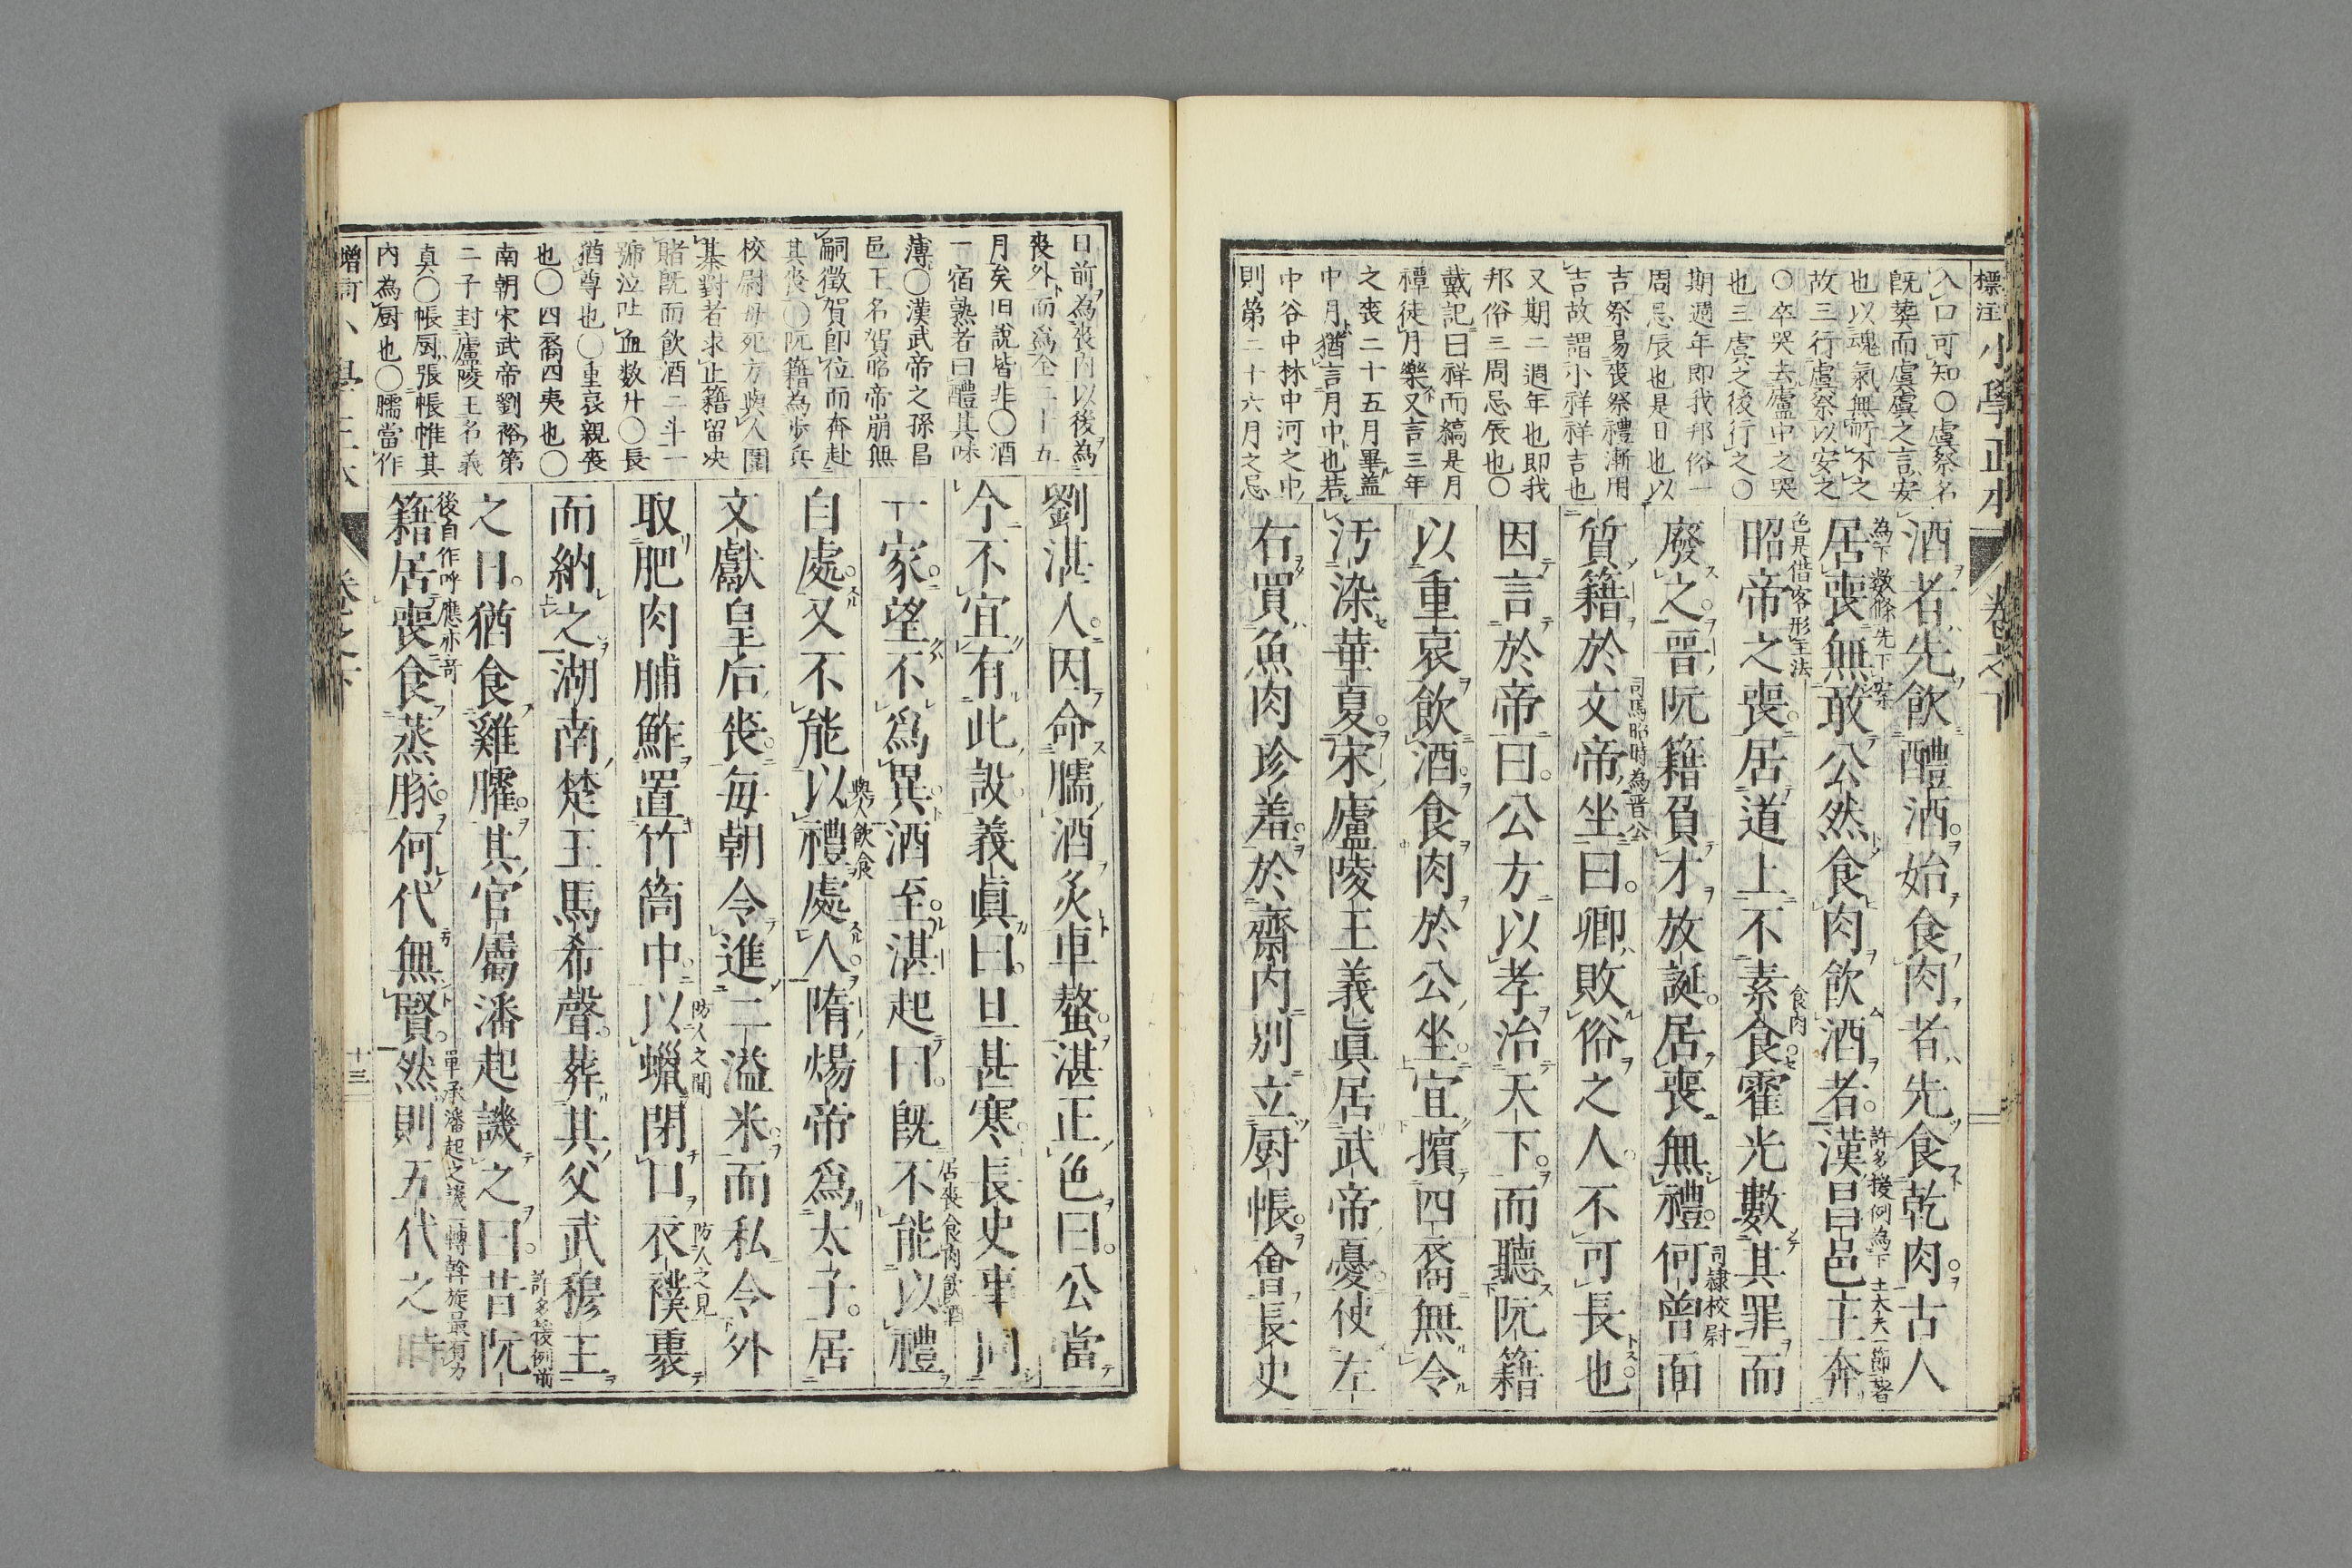 標注
小學正本
卷之下
入口可知○虞祭名
既葬而虞虞之言安
也以魂氣無所不之
故三行虞祭以安之
○卒哭去廬中之哭
也三虞之後行之○
期週年即我邦俗一
周忌辰也是日也以
吉祭易喪祭禮漸用
吉故謂小祥祥吉也
又期二週年也即我
邦俗三周忌辰也○
戴記曰祥而縞是月
禫徒月樂又言三年
之喪二十五月畢蓋
中月猶言月中也若
中谷中林中河之中
則第二十六月之忌
酒者先飲醴酒始食肉者先食乾肉古人
居喪無敢公然食肉飲酒者漢昌邑王奔
昭帝之喪居道上不素食霍光數其罪而
廢之晉阮籍負才放誕居喪無禮何曾面
質籍於文帝坐曰卿敗俗之人不可長也
因言於帝曰公方以孝治天下而聽阮籍
以重哀飲酒食肉於公坐宜擯四裔無令
汚染華夏宋廬陵王義眞居武帝憂使左
右買魚肉珍羞於齋內別立厨帳會長史
許多援例為下士大夫一節著
色是借客形主法
食肉
司隷校尉
司馬昭時為晋公
日前為喪內以後為
喪外而為全二十五
月矣旧說皆非○酒
一宿熟者曰醴其味
薄○漢武帝之孫昌
邑王名賀昭帝崩無
嗣徵賀即位而奔赴
其喪○阮籍為步兵
校尉母死方與人圍
棊對者求止籍留決
賭既而飲酒二斗一
號泣吐血数升○長
猶尊也○重哀親喪
也○四裔四夷也○
南朝宋武帝劉裕第
二子封廬陵王名義
真○帳厨張帳帷其
內為厨也○臑當作
劉湛入因命臑酒炙車螯湛正色曰公當
今不宜有此設義眞曰旦甚寒長史事同
一家望不爲異酒至湛起曰既不能以禮
自處又不能以禮處人隋煬帝爲太子居
文獻皇后喪每朝令進二溢米而私令外
取肥肉脯鮓置竹筩中以蠟閉口衣襆裹
而納之湖南楚王馬希聲葬其父武穆王
之日猶食雞臛其官屬潘起譏之曰昔阮
籍居喪食蒸豚何代無賢然則五代之時
居喪食肉飲酒
與人飲食
防人之聞
防人之見
許多援例前
後自作呼應亦奇
單承潘起之譏一轉斡旋最有力
十三